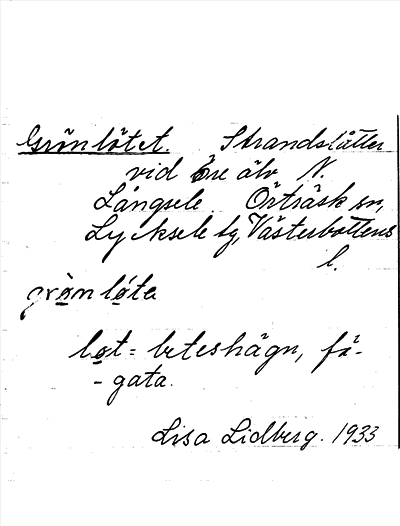 Grönlötet. Strandslåtter
vid Öre älv N.
Långsele. Örträsk sn,
Lycksele tg, Västerbottens
l.
grönlöta
løt = beteshägn, fä-
- gata.
Lisa Lidberg. 1933